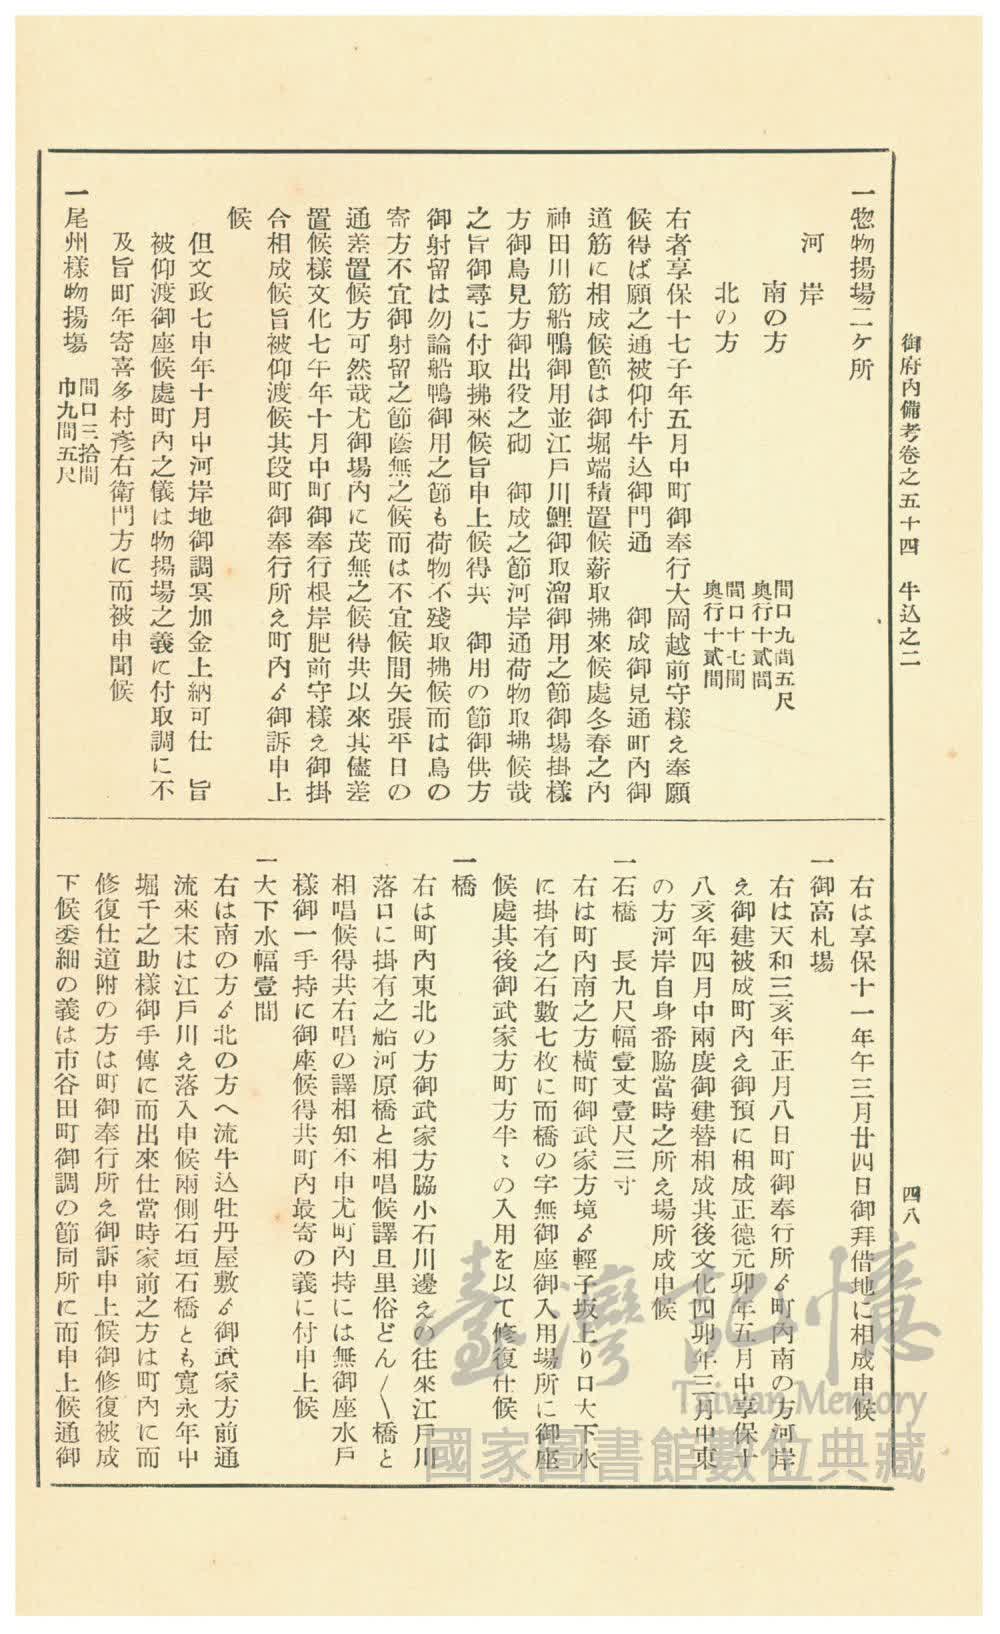 御府內備考卷之五十四　牛込之二
四八
一惣物揚場二ケ所
河　岸
南の方
間口九間五尺
奧行十貳間
北の方
間口十七間
奧行十貳間
右者享保十七子年五月中町御奉行大岡越前守樣え奉願
候得ば願之通被仰付牛込御門通　御成御見通町內御
道筋に相成候節は御堀端積置候薪取拂來候處冬春之內
神田川筋船鴨御用並江戶川鯉御取溜御用之節御場掛樣
方御鳥見方御出役之砌　御成之節河岸通荷物取拂候哉
之旨御尋に付取拂來候旨申上候得共　御用の節御供方
御射留は勿論船鴨御用之節も荷物不殘取拂候而は鳥の
寄方不宜御射留之節蔭無之候而は不宜候間矢張平日の
通差置候方可然哉尤御場內に茂無之候得共以來其儘差
置候樣文化七午年十月中町御奉行根岸肥前守樣え御掛
合相成候旨被仰渡候其段町御奉行所え町內ゟ御訴申上
候
但文政七申年十月中河岸地御調冥加金上納可仕　旨
被仰渡御座候處町內之儀は物揚場之義に付取調に不
及旨町年寄喜多村彥右衛門方に而被申聞候
一尾州樣物揚塲
間口三拾間
巾九間五尺
右は享保十一年午三月廿四日御拜借地に相成申候
一御高札場
右は天和三亥年正月八日町御奉行所ゟ町內南の方河岸
え御建被成町內え御預に相成正德元卯年五月中享保十
八亥年四月中兩度御建替相成其後文化四卯年三月中東
の方河岸自身番脇當時之所え場所成申候
一石橋　長九尺幅壹丈壹尺三寸
右は町內南之方橫町御武家方境ゟ輕子坂上り口大下水
に掛有之石數七枚に而橋の字無御座御入用場所に御座
候處其後御武家方町方半〻の入用を以て修復仕候
一橋
右は町內東北の方御武家方脇小石川邊えの往來江戶川
落口に掛有之船河原橋と相唱候譯且里俗どん〳〵橋と
相唱候得共右唱の譯相知不申尤町內持には無御座水戶
樣御一手持に御座候得共町內最寄の義に付申上候
一大下水幅壹間
右は南の方ゟ北の方へ流牛込牡丹屋敷ゟ御武家方前通
流來末は江戶川え落入申候兩側石垣石橋とも寬永年中
堀千之助樣御手傳に而出來仕當時家前之方は町內に而
修復仕道附の方は町御奉行所え御訴申上候御修復被成
下候委細の義は市谷田町御調の節同所に而申上候通御
臺灣記憶
Taiwan Memory
國家圖書館數位典藏